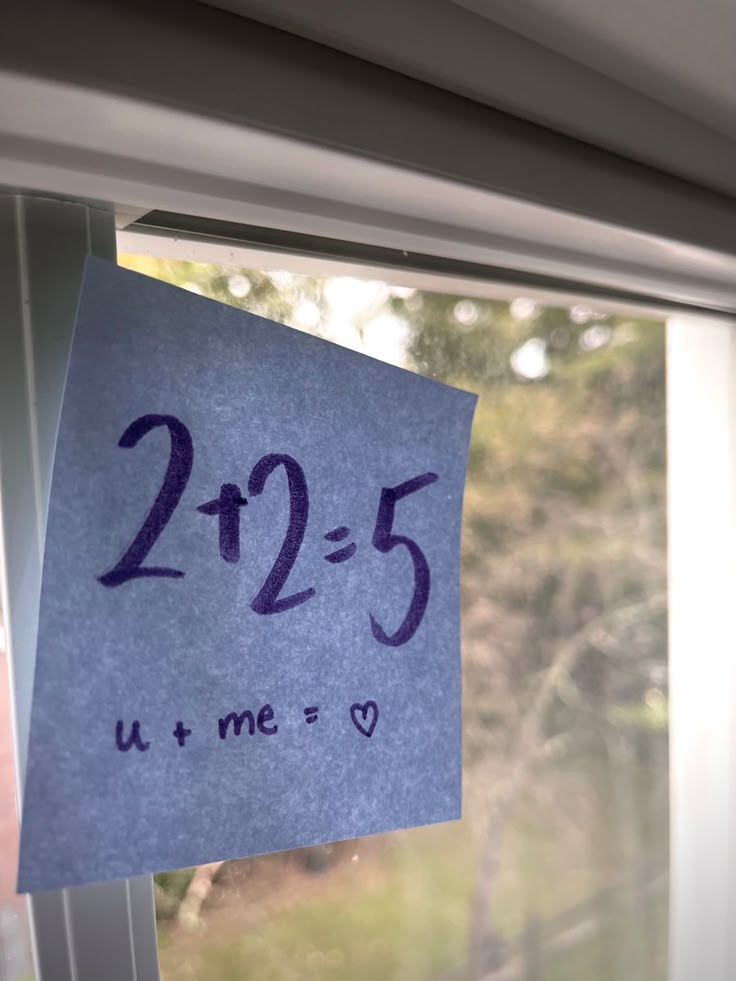 2+2=5
u + me = ♡